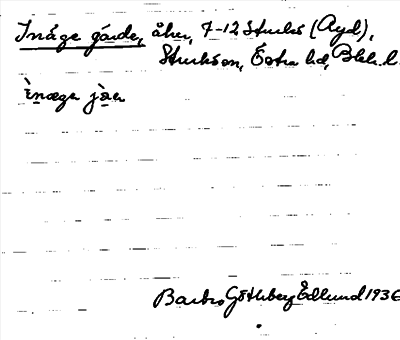 Inåge gärde, åker, 7-12 Sturkö (Ayd),
Sturkö sn, Östra hd, Blek. l.
ìnægɐ jæ̀ɐ
Barbro Götlberg Edlund 1936